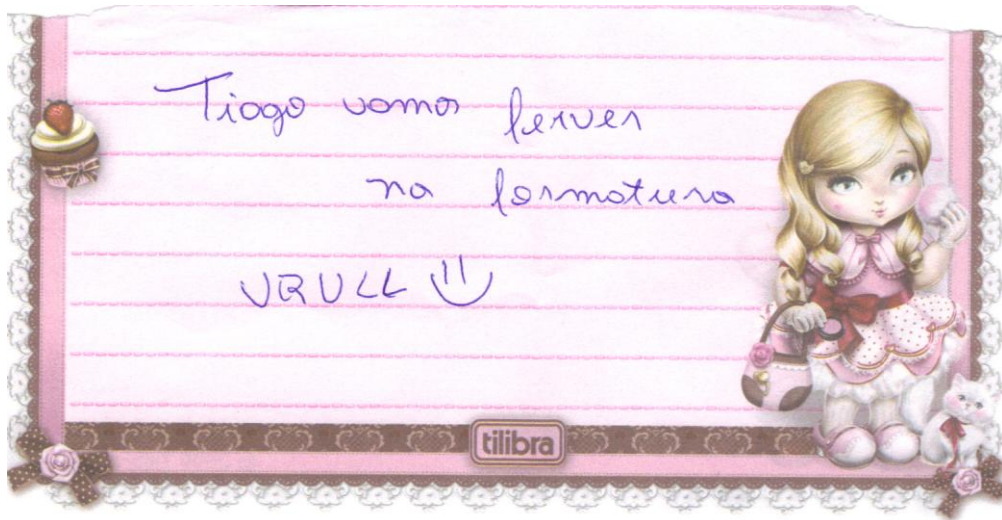 Tiago vamos ferver
na formatura
URULL
tilibra